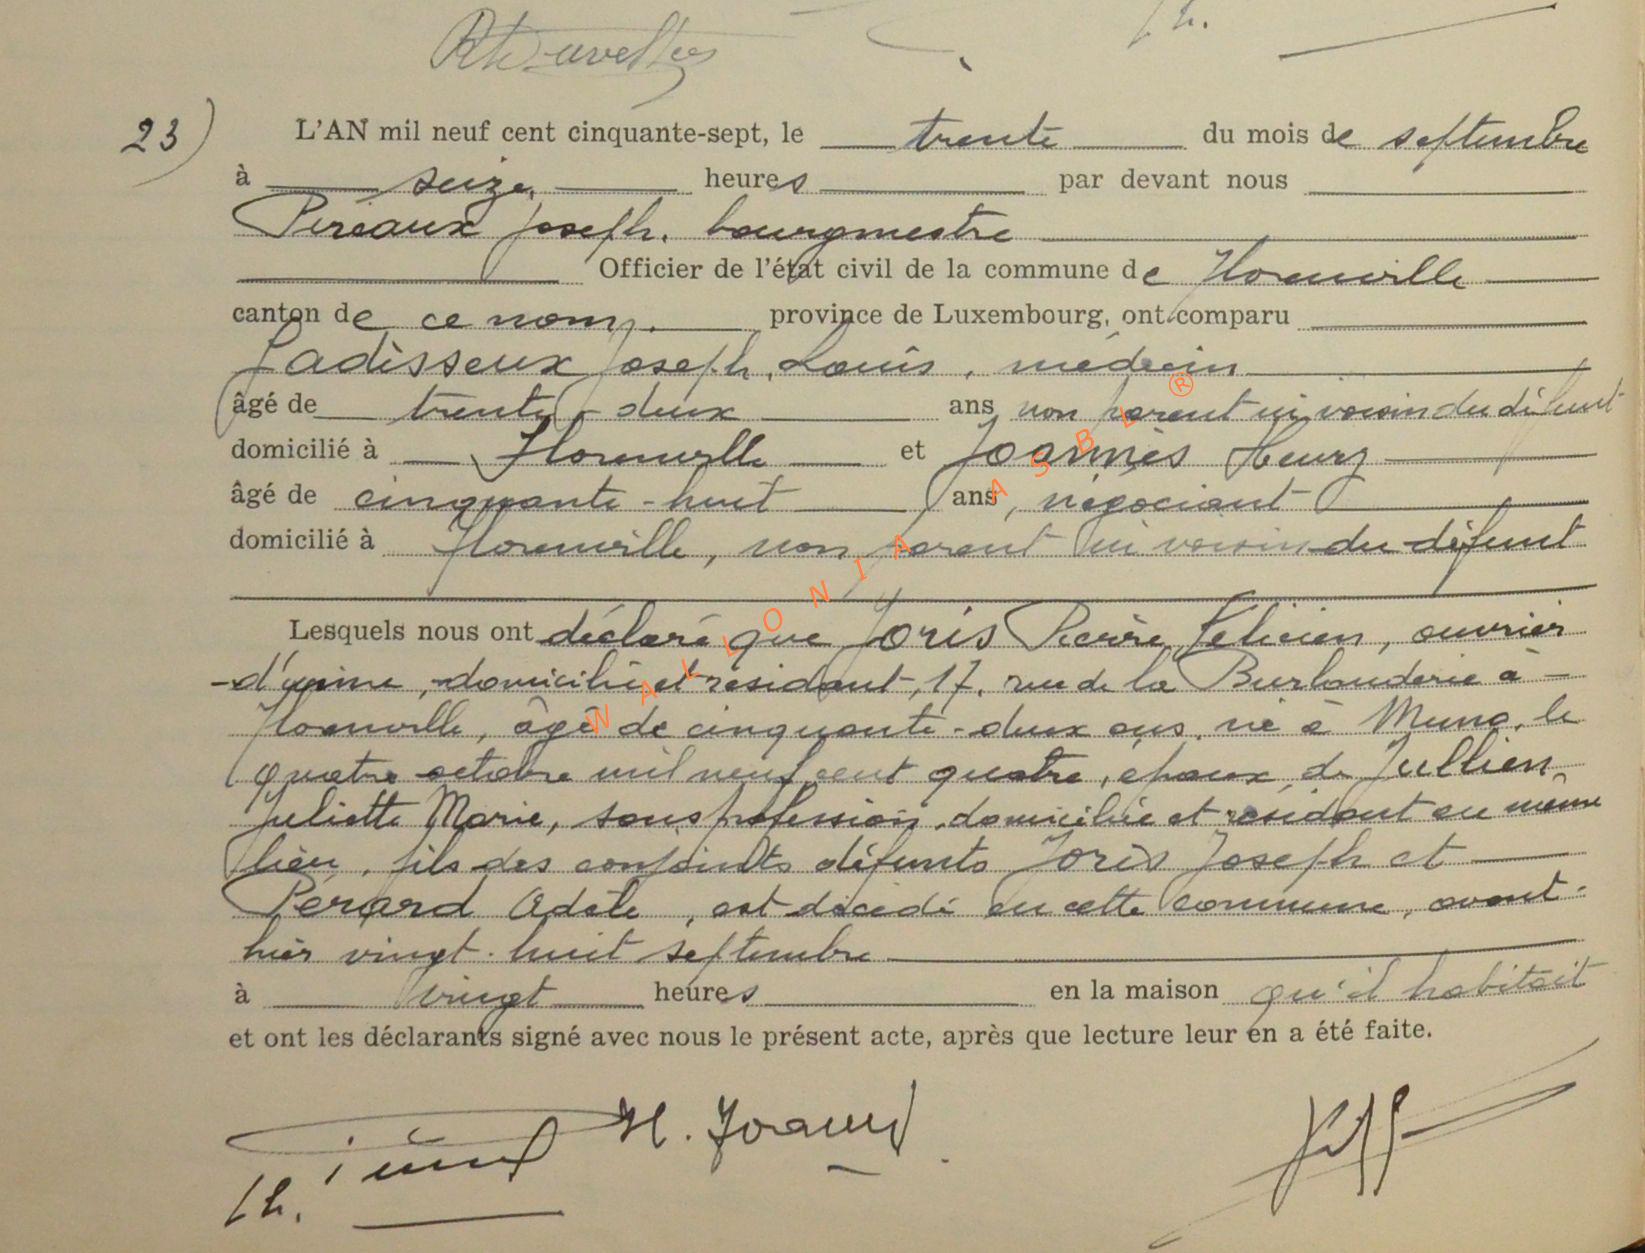 23) L'AN mil neuf cent cinquante-sept, le trente du mois de septembre
à seize heures par devant nous
Piréaux Joseph, bourgmestre
Officier de l'état civil de la commune de Florenville
canton de ce nom, province de Luxembourg, ont comparu
Ladisseux Joseph, Louis, médecin
âgé de trente-deux ans non parent ni voisin du défunt
domicilié à Florenville et Joannès Henry
âgé de cinquante-huit ans, négociant
domicilié à Florenville, non parent ni voisin du défunt
Lesquels nous ont déclaré que Joris Pierre, Félicien, ouvrier
d'usine, domicilié et résidant, 17, rue de la à
Florenville, âgé de cinquante-deux ans, né à Muno, le
quatre octobre mil neuf cent quatre, époux de Jullien
Juliette Marie, sans profession, domiciliée et résidant au même
lieu, fils des conjoints défunts Joris Joseph et
Pérard Adèle, est décédé en cette commune, avant-
hier vingt-huit septembre
à vingt heures en la maison qu'il habitait
et ont les déclarants signé avec nous le présent acte, après que lecture leur en a été faite.
H. Joannès
WALLONIA ASBL ®